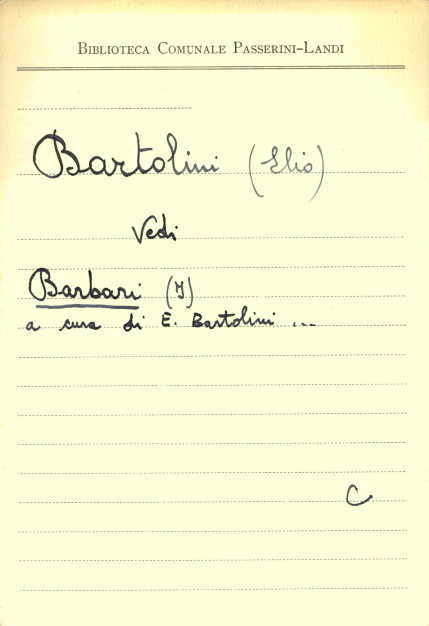 BIBLIOTECA COMUNALE PASSERINI-LANDI
Bartolini (Elio)
Vedi
Barbari (I)
a cura di E. Bartolini ...
C